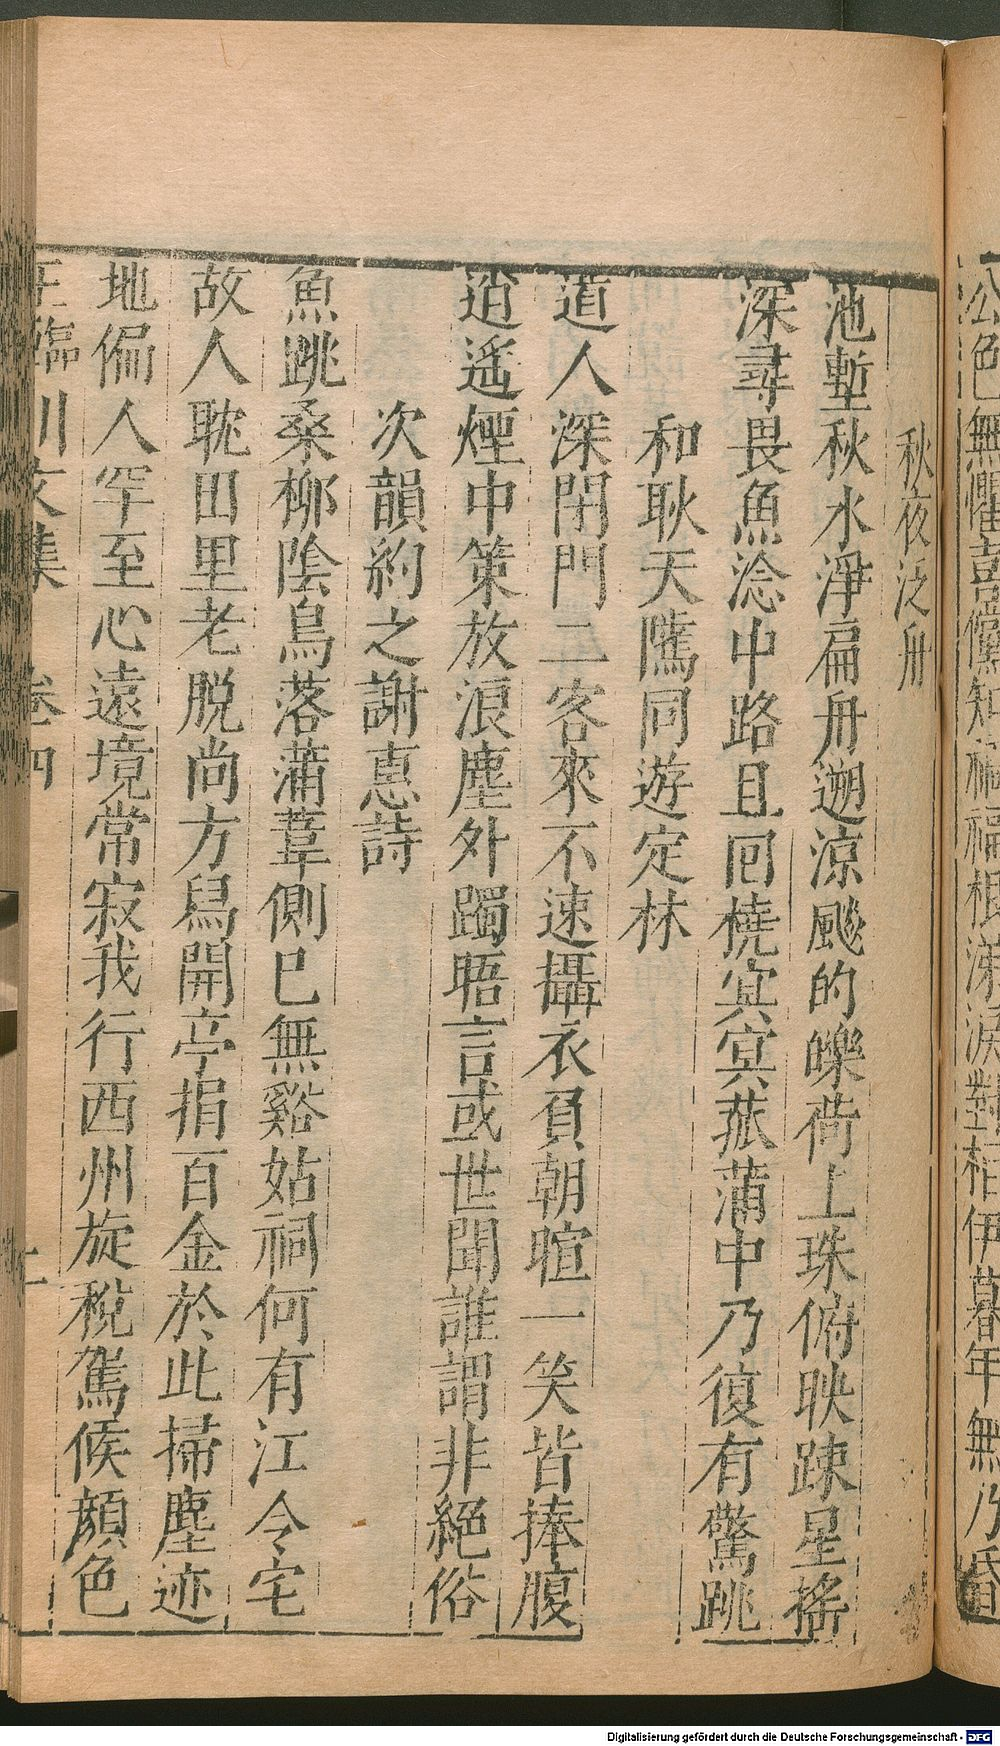 公色無懼喜儻知禍福根涕淚對相伊暮年無乃昏
秋夜泛舟
池塹秋水淨扁舟遡涼飈的皪荷上珠俯映踈星搖
深尋畏魚淰中路且囘橈冥冥菰蒲中乃復有驚跳
和耿天隲同遊定林
道人深閉門二客來不速攝衣負朝暄一笑皆捧腹
逍遙煙中策放浪塵外躅晤言或世聞誰謂非絕俗
次韻約之謝惠詩
魚跳桑柳陰烏落蒲葦側已無谿姑祠何有江令宅
故人耽田里老脫尚方舄開亭捐百金於此掃塵迹
地偏人罕至心遠境常寂我行西州旋稅駕候顏色
王臨川文集 卷四
Digitalisierung gefördert durch die Deutsche Forschungsgemeinschaft - DFG